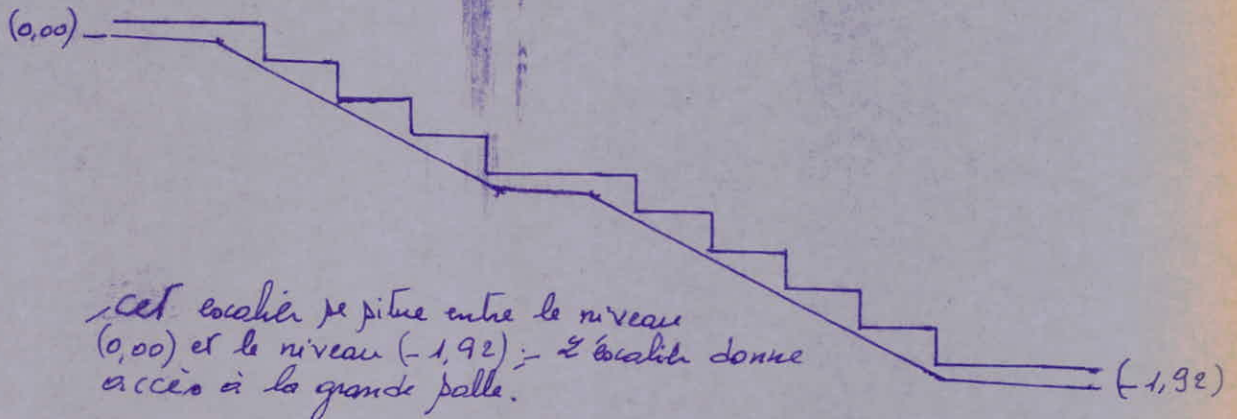 (0,00)
cet escalier se situe entre le niveau
(0,00) et le niveau (-1,92); - L'escalier donne
accès à la grande salle.
(-1,92)